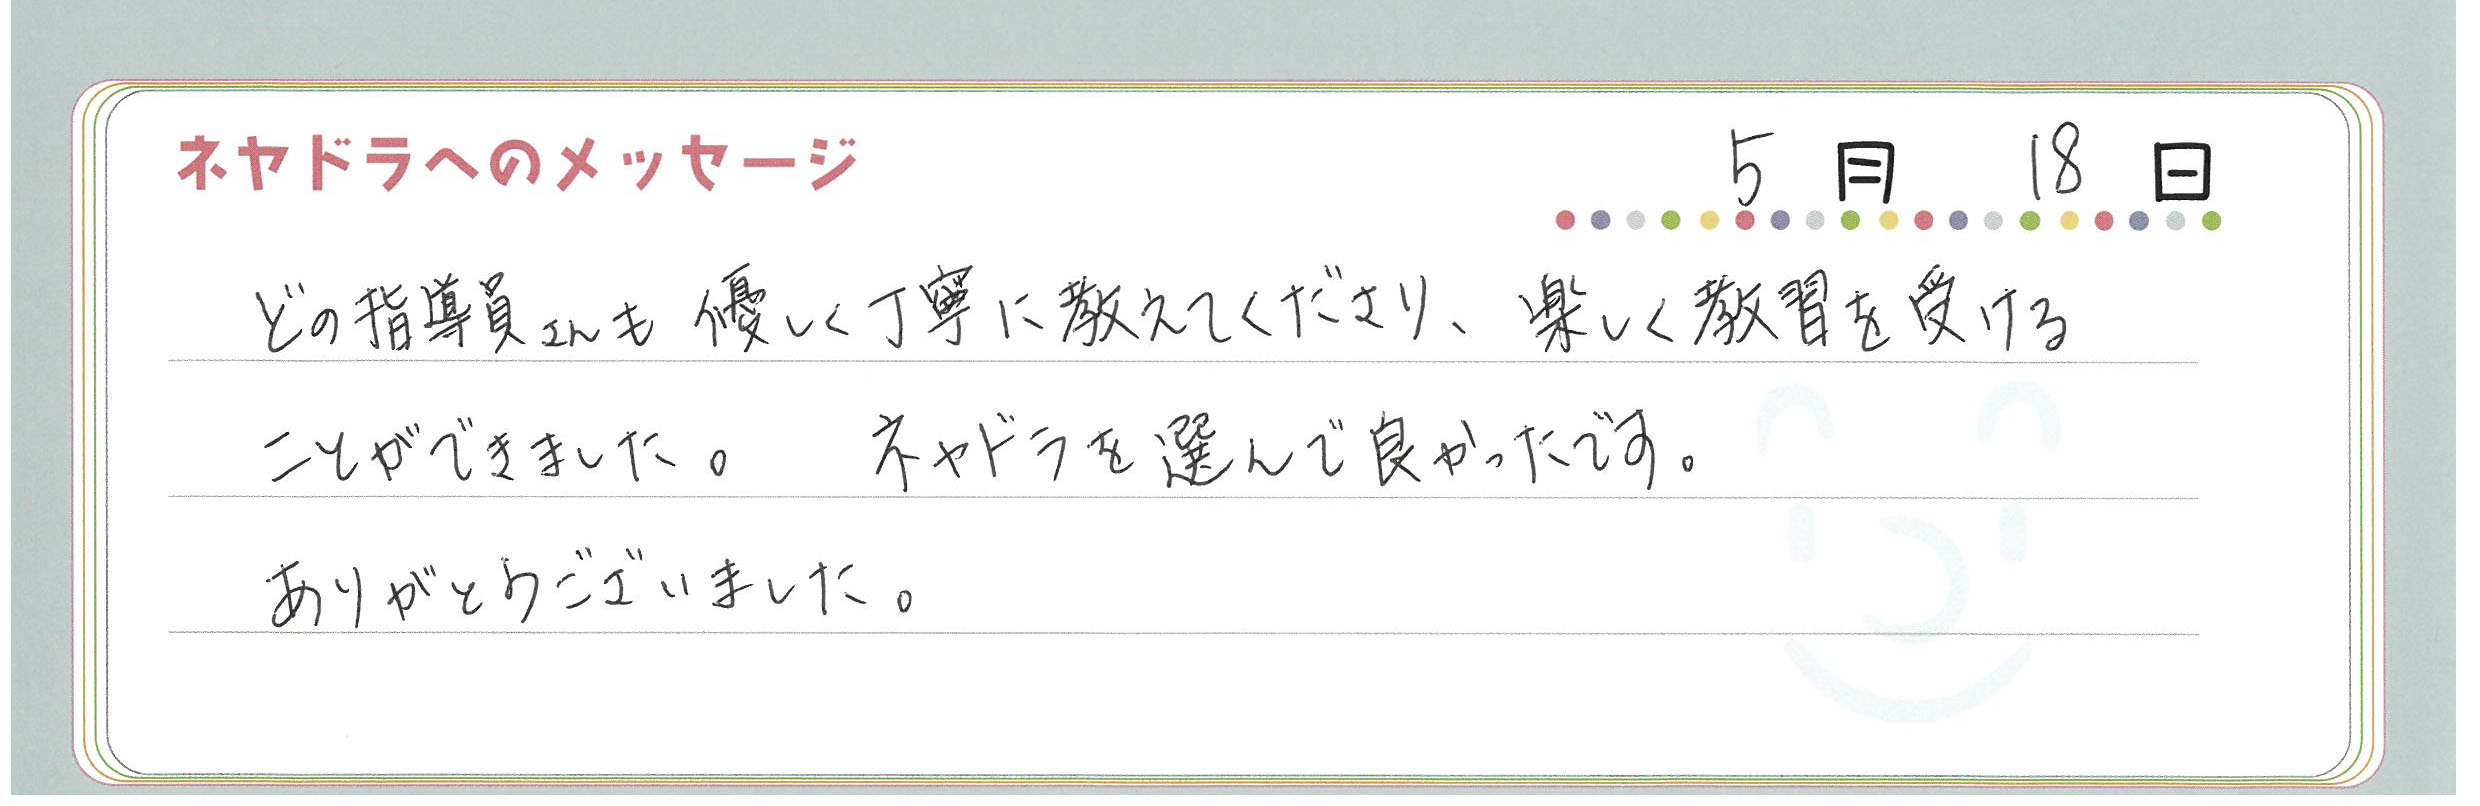 ネヤドラへのメッセージ
5月 18日
どの指導員さんも優しく丁寧に教えてくださり、楽しく教習を受ける
ことができました。 ネヤドラを選んで良かったです。
ありがとうございました。